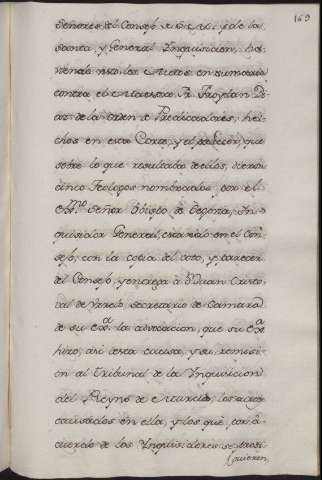 169
Señores del Consejo de S. M. y de la
Santa, y General Inquisicion, ha-
viendo visto los Autos en sumaria
contra el Maestro Fr. Froylan Di-
az de la orden de Predicadores, he-
chos en esta Corte, y el parecer, que
sobre lo que resultaba de ellos, dieron
cinco Teologos nombrados por el
Señor Obispo de Segovia, In-
quisidor General, estando en el Con-
sejo, con la copia del voto, y parecer
del Consejo, y entrega à D. Juan Cristo-
val de Varelo, secretario de Camara
de su Exª. la advocacion, que su Exª
hizo, asi desta causa, y su remisi-
on al Tribunal de la Inquisicion
del Reyno de Murcia, los autos
causados en ella, y los que, con a-
cuerdo de los Inquisidores
quieren,